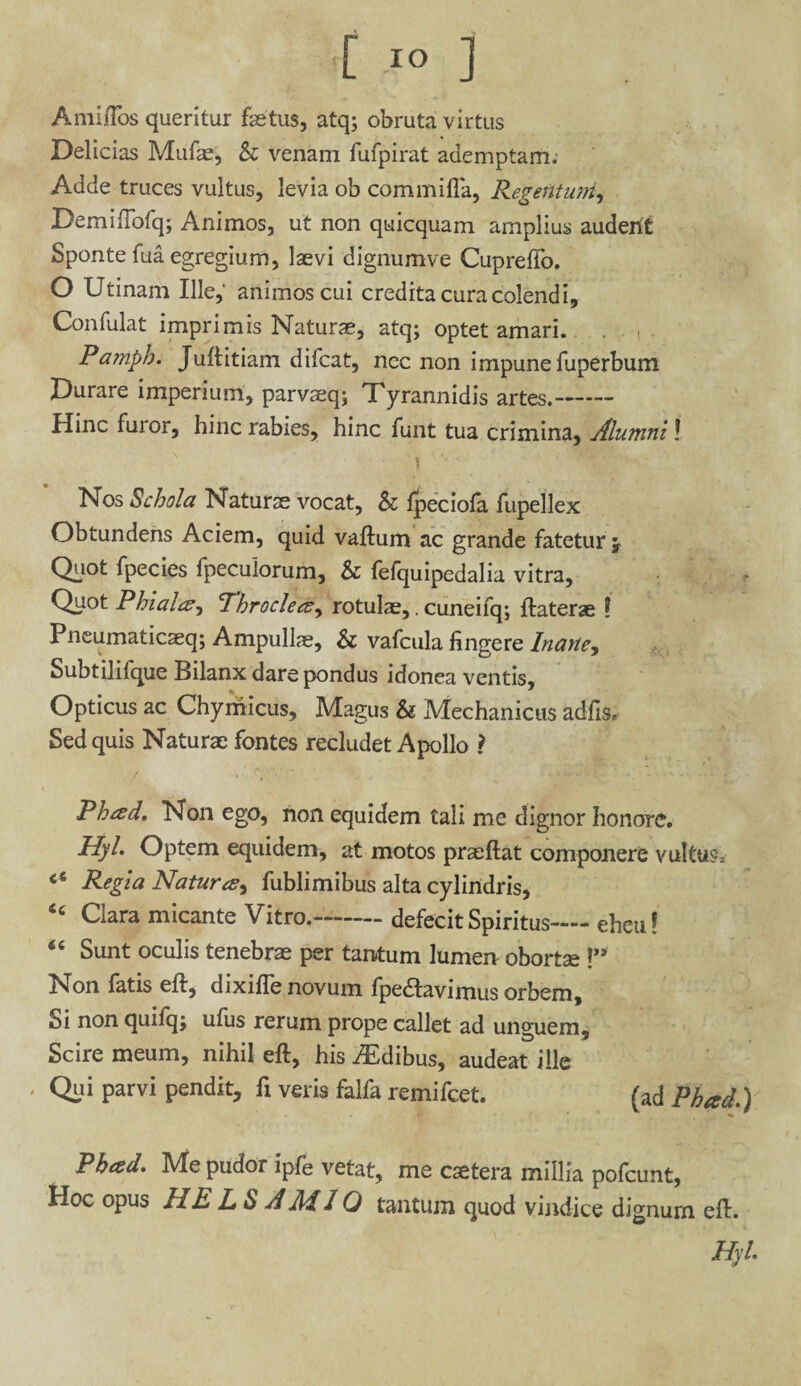 [ 10 ]
Amiſſos queritur fætus, atq; obruta virtus
Delicias Muſæ, & venam ſuſpirat ademptam.
Adde truces vultus, levia ob commiſſa, Regentum,
Demiſſoſq; Animos, ut non quicquam amplius audent
Sponte ſuâ egregium, lævi dignumve Cupreſſo.
O Utinam Ille, animos cui credita cura colendi,
Conſulat imprimis Naturæ, atq; optet amari.
Pamph. Juſtitiam diſcat, nec non impune ſuperbum
Durare imperium, parvæq; Tyrannidis artes.——
Hinc furor, hinc rabies, hinc ſunt tua crimina, Alumni!
Nos Schola Naturæ vocat, & ſpecioſa ſupellex
Obtundens Aciem, quid vaſtum ac grande fatetur;
Quot ſpecies ſpeculorum, & ſeſquipedalia vitra,
Quot Phialæ, Throcleæ, rotulæ, cuneiſq; ſtateræ!
Pneumaticæq; Ampullæ, & vaſcula fingere Inane,
Subtiliſque Bilanx dare pondus idonea ventis,
Opticus ac Chymicus, Magus & Mechanicus adſis.
Sed quis Naturæ fontes recludet Apollo?
Phæd. Non ego, non equidem tali me dignor honore.
Hyl. Optem equidem, at motos præſtat componere vultus.
“ Regia Naturæ, ſublimibus alta cylindris,
“ Clara micante Vitro.—— defecit Spiritus—— eheu!
“ Sunt oculis tenebræ per tantum lumen obortæ!”
Non ſatis eſt, dixiſſe novum ſpectavimus orbem,
Si non quiſq; uſus rerum prope callet ad unguem,
Scire meum, nihil eſt, his Ædibus, audeat ille
Qui parvi pendit, ſi veris falſa remiſcet. (ad Phæd.)
Phæd. Me pudor ipſe vetat, me cætera millia poſcunt,
Hoc opus HELSAMIO tantum quod vindice dignum eſt.
Hyl.